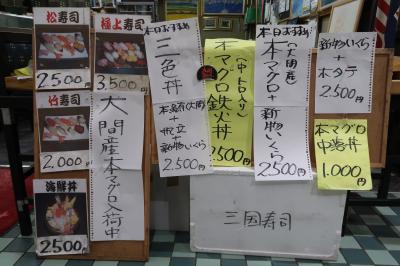 松寿司
2500円
極上寿司
3,500円
竹寿司
2,000円
海鮮丼
2500円
大間産本マグロ入荷中
本日おすすめ
三色丼
本まぐろ(大間)
+
帆立
+
新物いくら
2,500円
(中トロ入り)
本マグロ鉄火丼
2500円
本日おすすめ
(大間産)
本マグロ
+
新物いくら
2,500円
新物いくら
+
ホタテ
2,500円
本マグロ
中落丼
1,000円
三国寿司